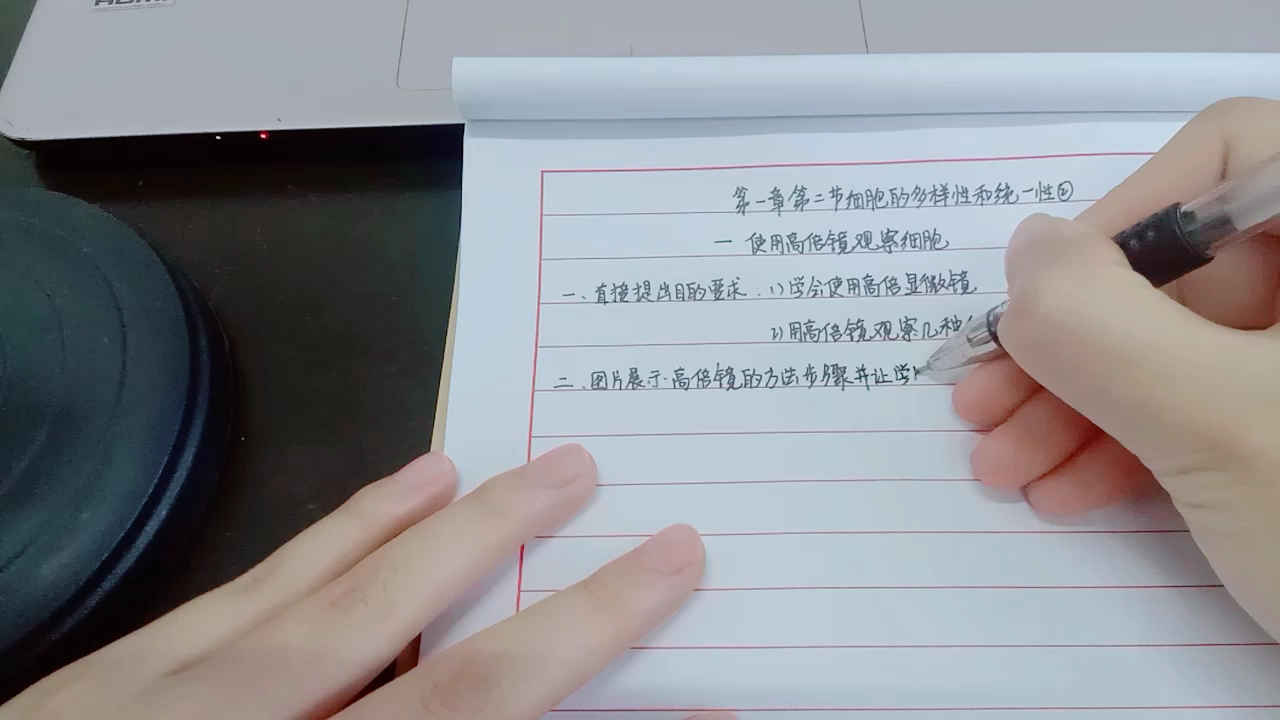 第一章第二节细胞的多样性和统一性②
一 使用高倍镜观察细胞
一、直接提出目的要求：1)学会使用高倍显微镜
2)用高倍镜观察几种
二、图片展示·高倍镜的方法步骤并让学